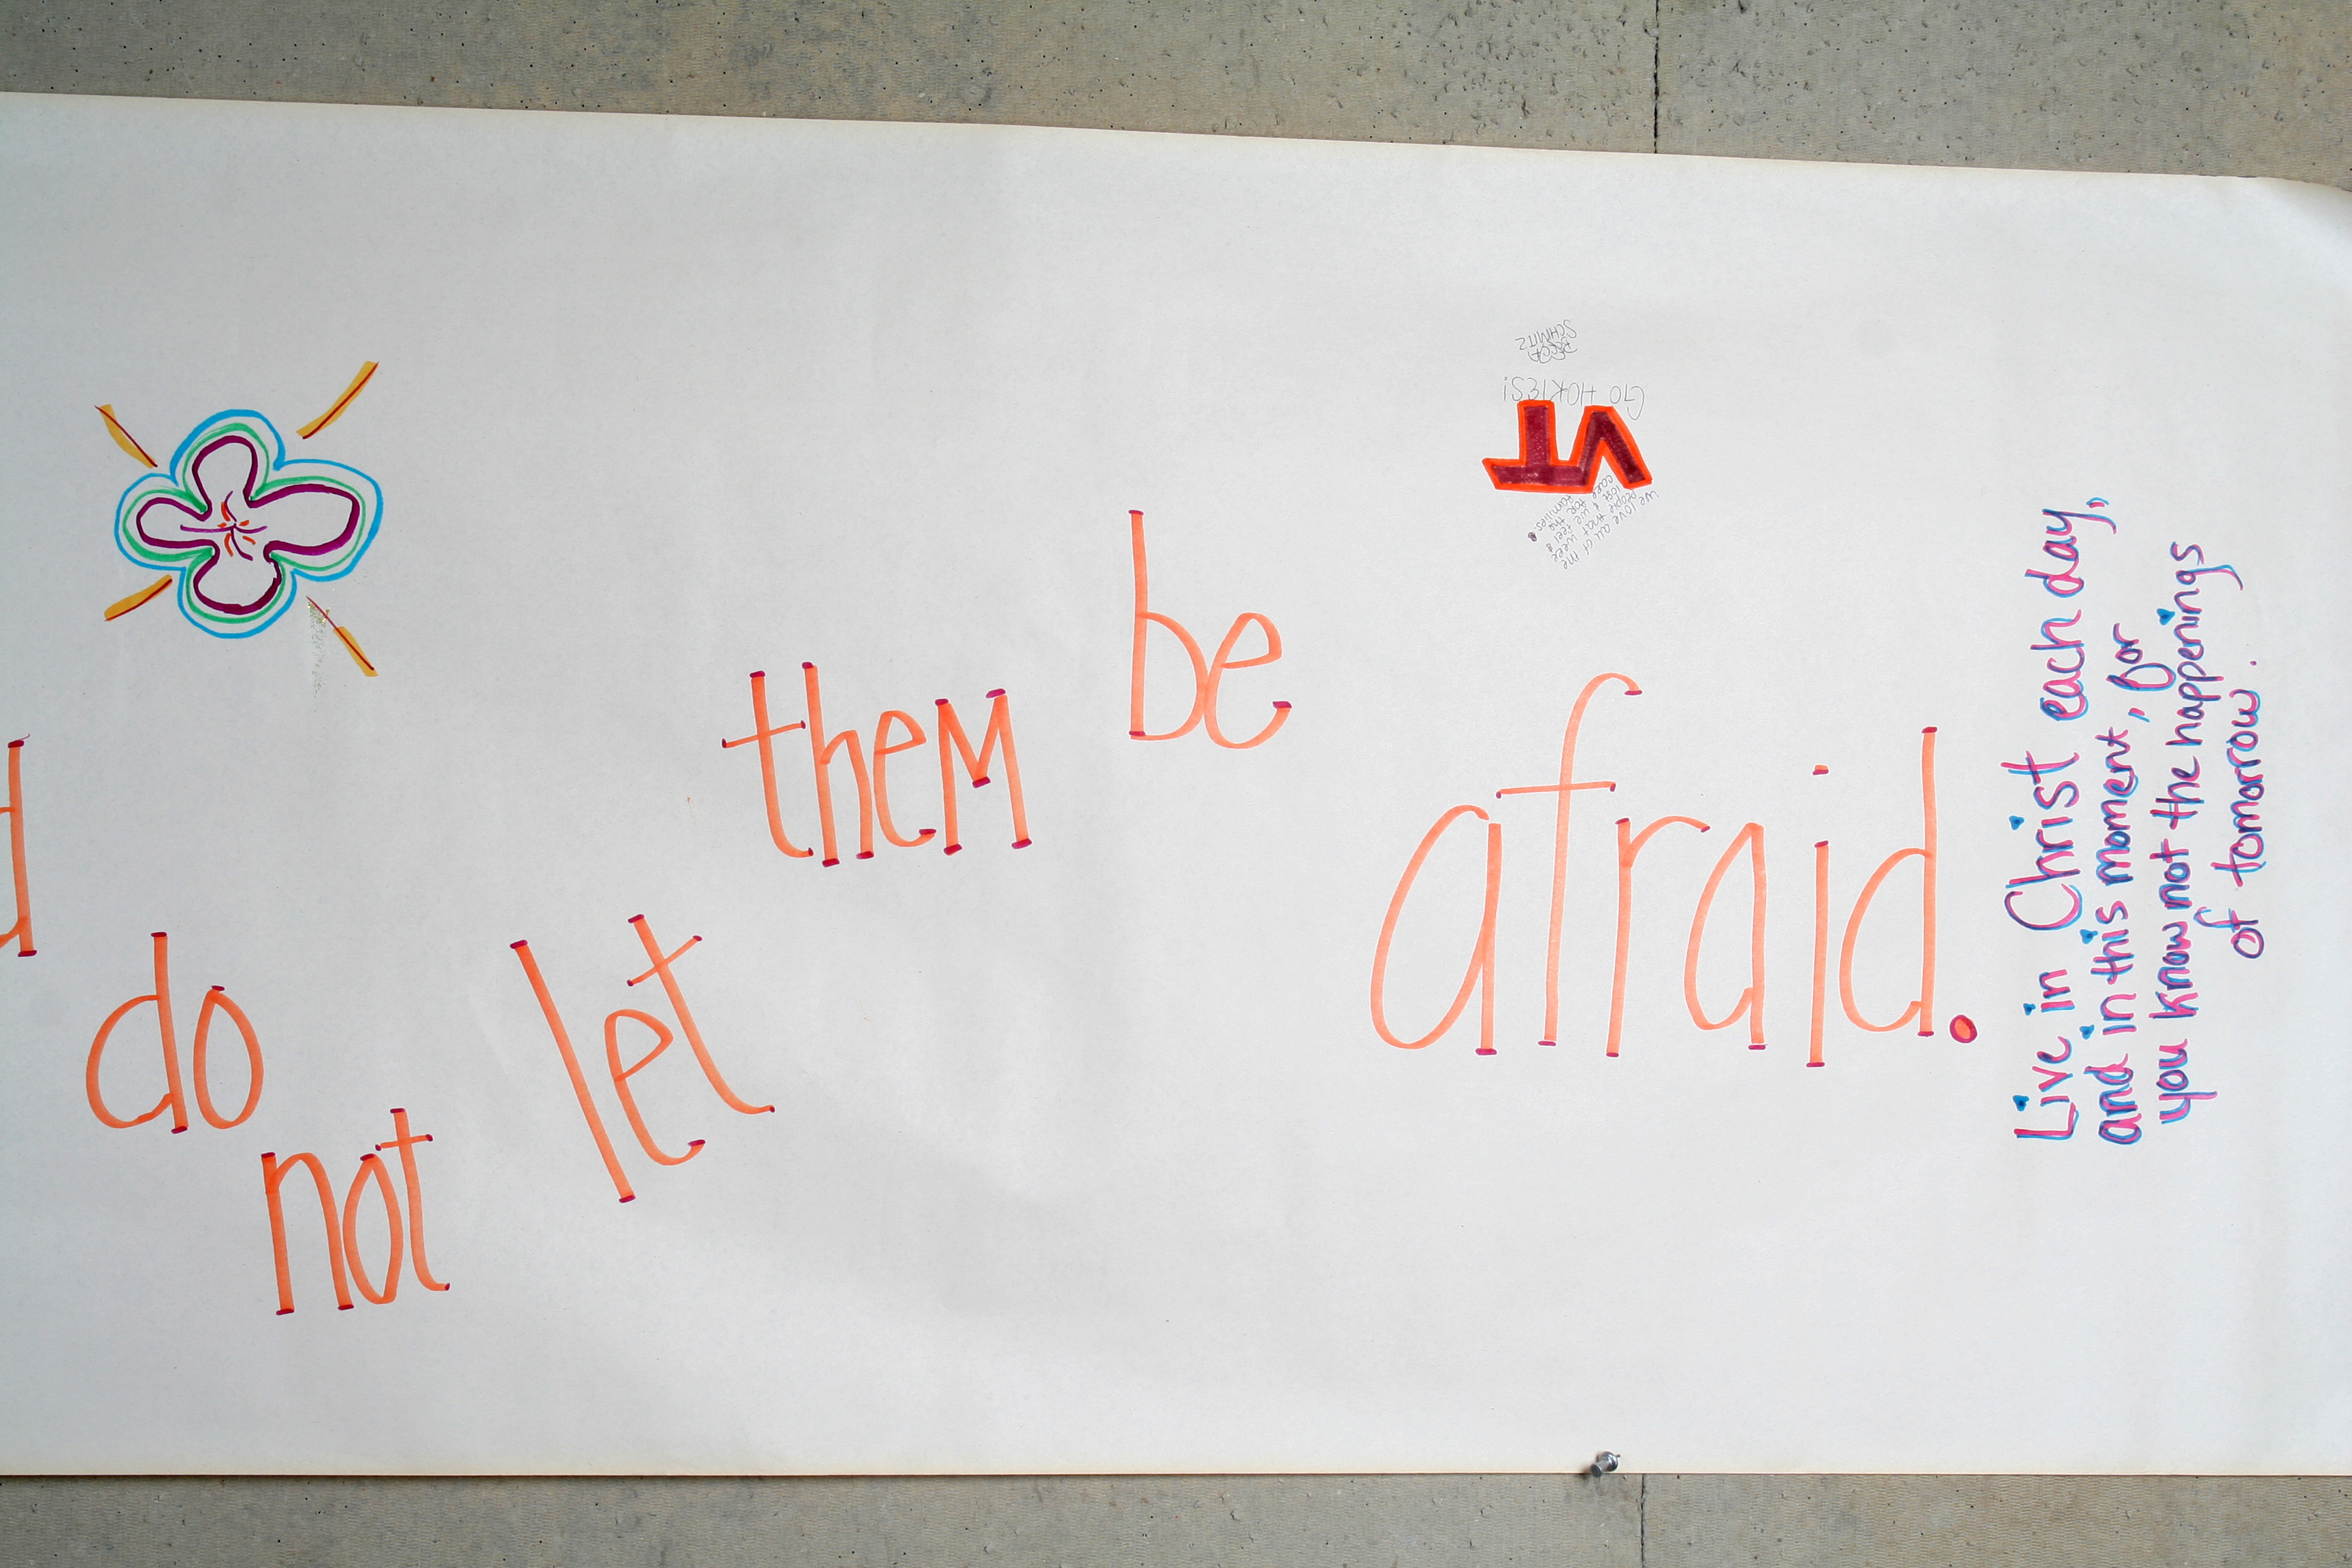 d
do
not
let
them
be
afraid.
GO HOKIES!
BECCA
SCHMITZ
VT
We love all of the
people that were
lost & we feel &
care for the
families.
Live in Christ each day,
and in this moment, for
you know not the happenings
of tomorrow.